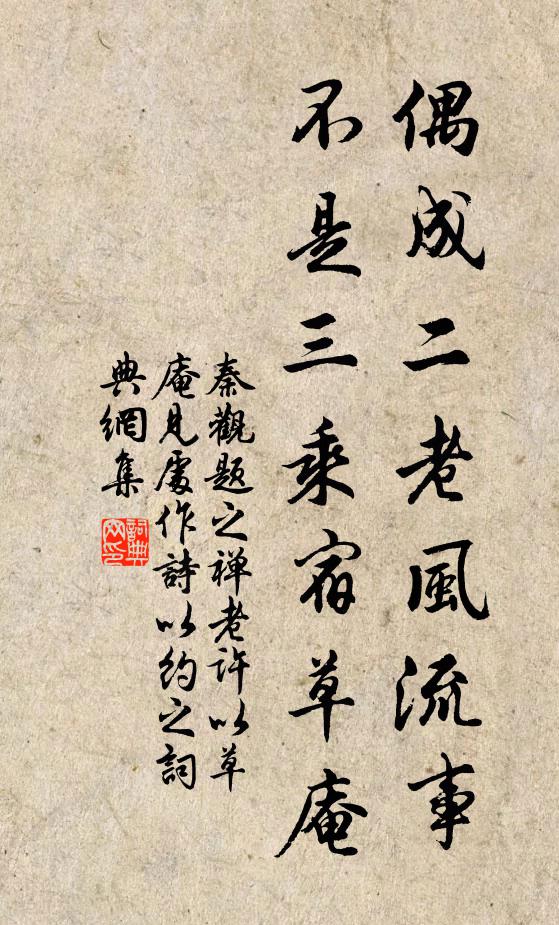 偶成二老風流事
不是三乘宿草庵
秦觀題之禅老許以草
庵見處作詩以約之詞
典網集
詞典
网印